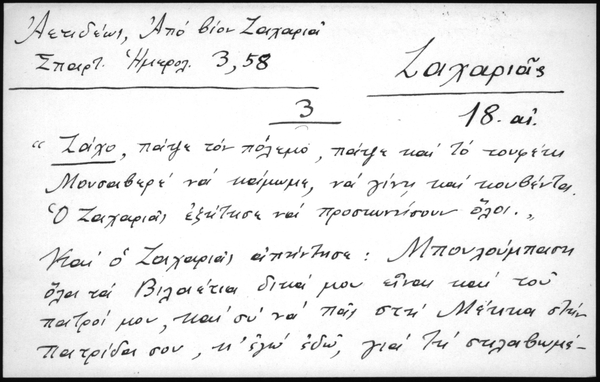 Ἀετιδέως, Ἀπό βίον Ζαχαριᾶ
Σπαρτ. Ἡμερολ. 3, 58
Ζαχαριᾶς
3
18. αἰ.
“ Ζάχο, πάψε τόν πόλεμο, πάψε καί τό τουφέκι
Μουσαβερέ νά κάμωμε, νά γίνῃ καί κουβέντα.
Ὁ Ζαχαριᾶς ἐζήτησε νά προσκυνήσουν ὅλοι. „
Καί ὁ Ζαχαριᾶς ἀπήντησε: Μπουλούμπαση
ὅλα τά Βιλαέτια δικά μου εἶναι καί τοῦ
πατρός μου, καί σύ νά πᾷς στή Μέκκα στήν
πατρίδα σου, κ' ἐγώ ἐδῶ, γιά τή σκλαβωμέ-